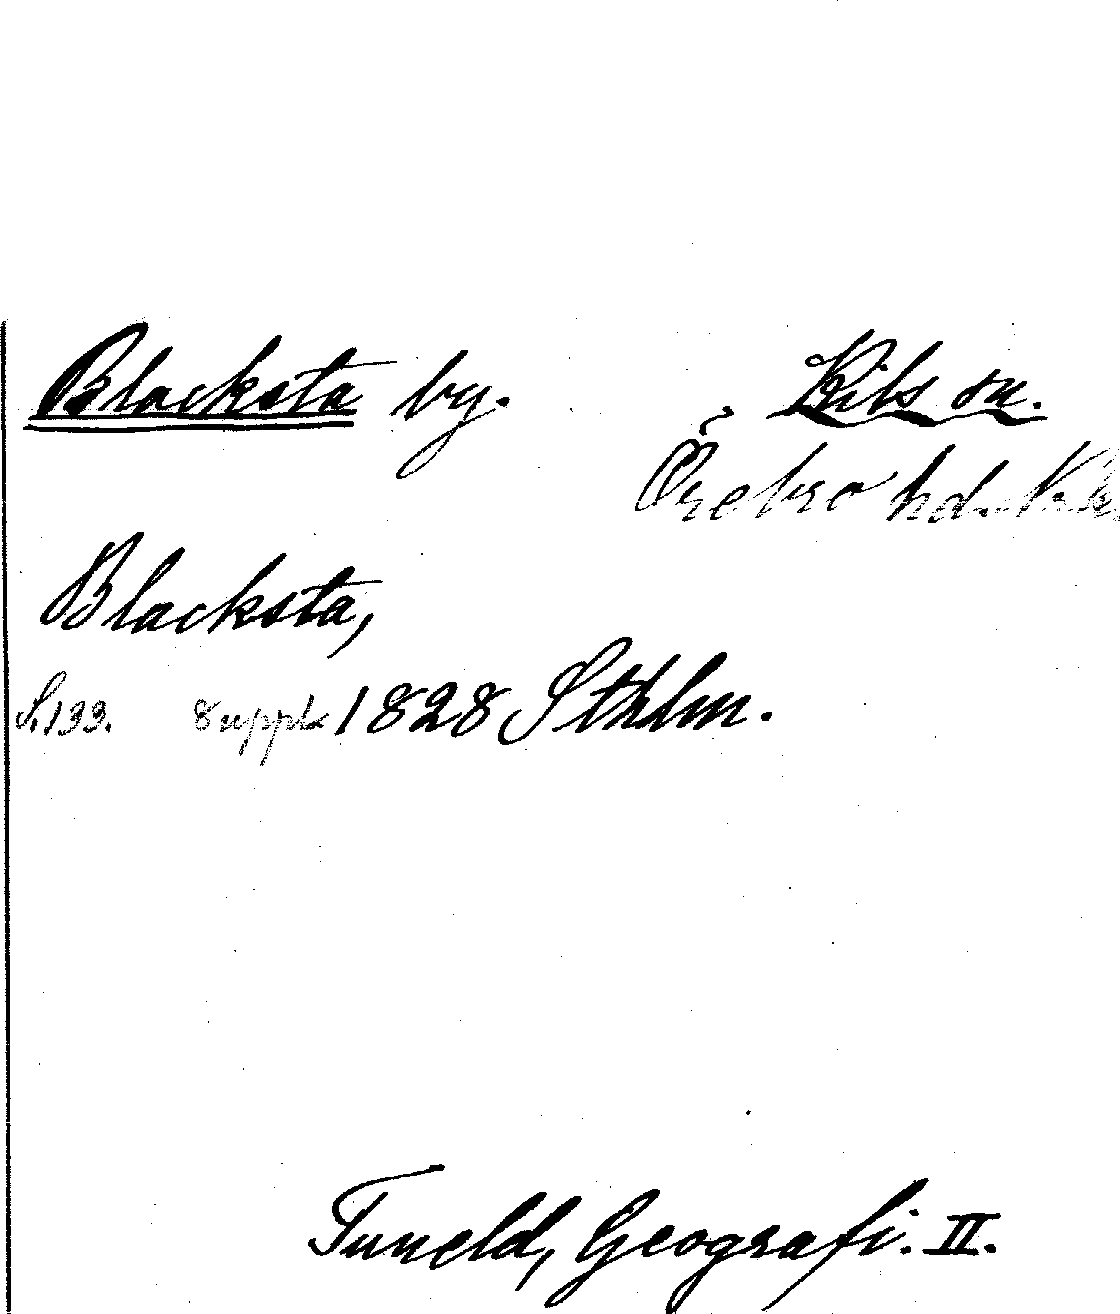 Blacksta by. Kils sn.
Örebro hd.
Blacksta,
S. 133. 8 uppl. 1828 Sthlm.
Tuneld, Geografi. II.